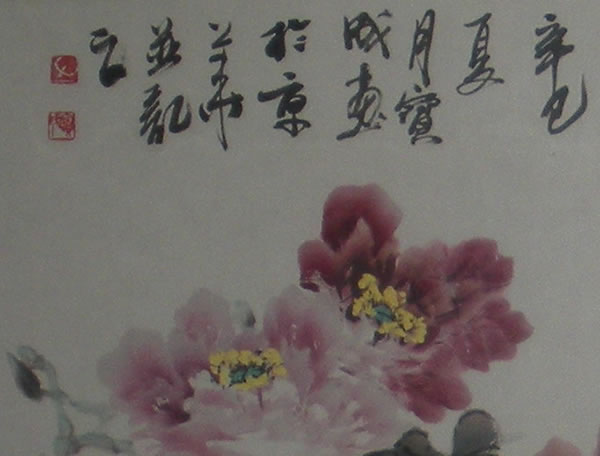 辛巳
夏
月寶
成畫
於京
華
並記
之